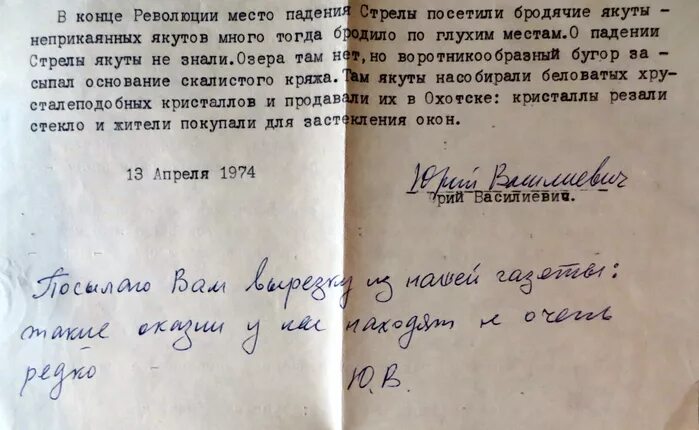 В конце Революции место падения Стрелы посетили бродячие якуты -
неприкаянных якутов много тогда бродило по глухим местам.О падении
Стрелы якуты не знали.Озера там нет, но воротникообразный бугор за -
сыпал основание скалистого кряжа.Там якуты насобирали беловатых хру-
сталеподобных кристаллов и продавали их в Охотске: кристаллы резали
стекло и жители покупали для застекления окон.
13 Апреля 1974
Юрий Василиевич
Юрий Василиевич.
Посылаю Вам вырезку из нашей газеты:
такие оказии у нас находят не очень
редко Ю.В.